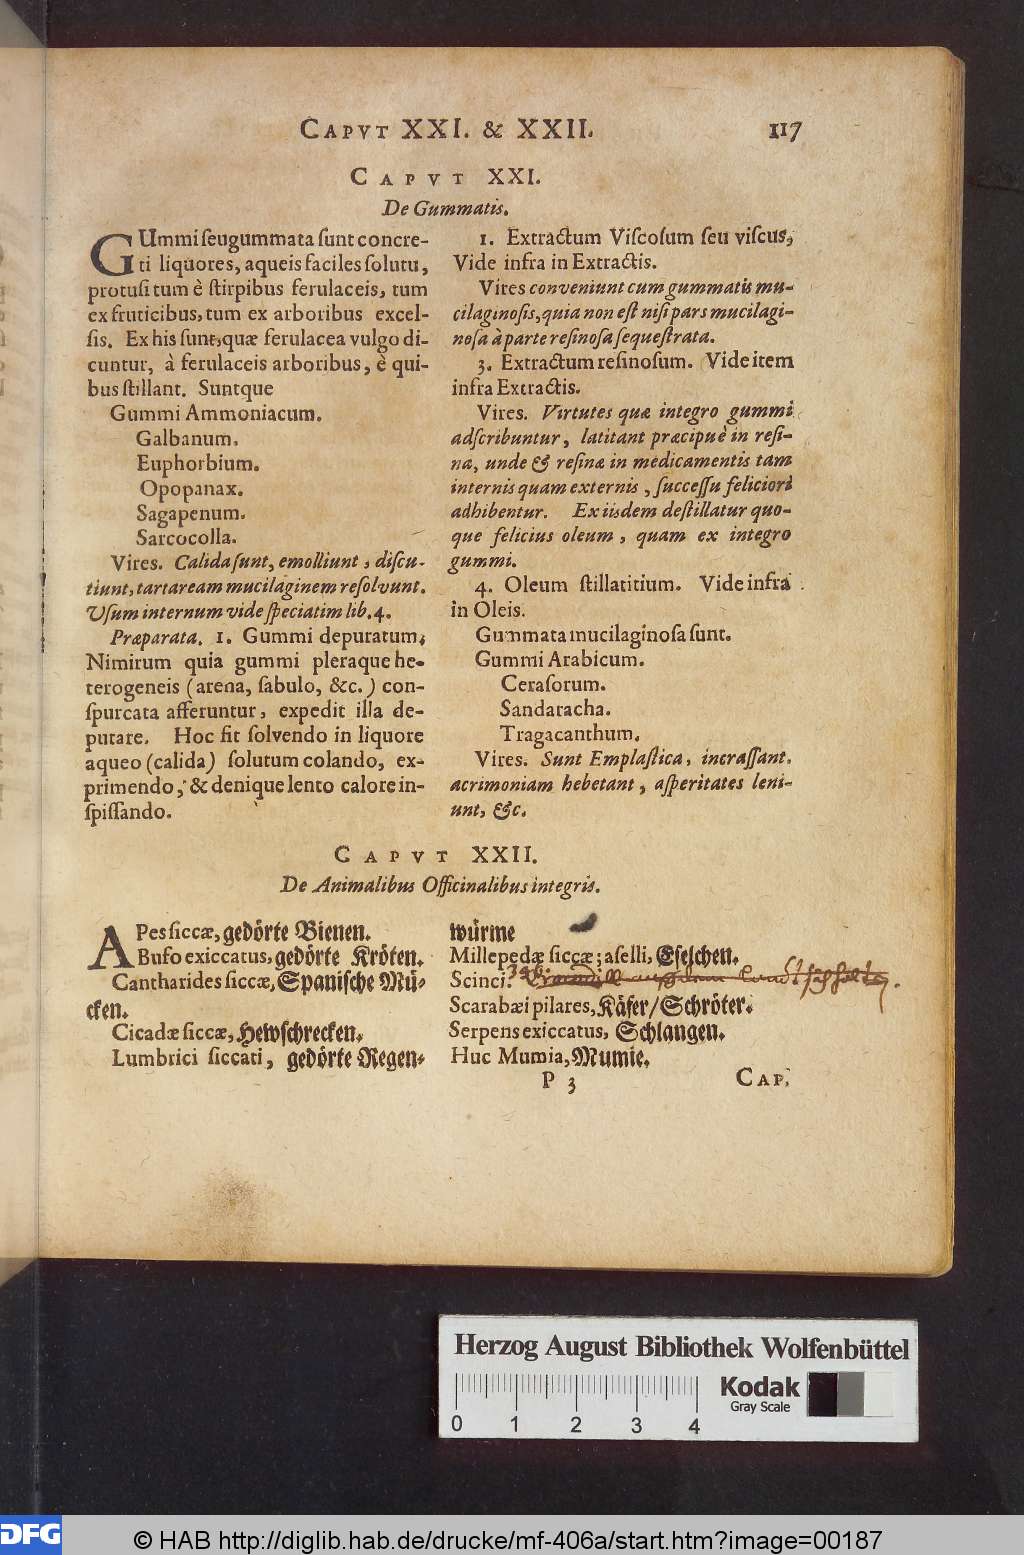 CAPVT XXI. & XXII. 117
CAPVT XXI.
De Gummatis.
GUmmi ſeu gummata ſunt concre-
ti liquores, aqueis faciles ſolutu,
protuſi tum è ſtirpibus ferulaceis, tum
ex fruticibus, tum ex arboribus excel-
ſis. Ex his ſunt, quæ ferulacea vulgo di-
cuntur, à ferulaceis arboribus, è qui-
bus ſtillant. Suntque
Gummi Ammoniacum.
Galbanum.
Euphorbium.
Opopanax.
Sagapenum.
Sarcocolla.
Vires. Calida ſunt, emolliunt, diſcu-
tiunt, tartaream mucilaginem reſolvunt.
Uſum internum vide ſpeciatim lib. 4.
Præparata. 1. Gummi depuratum,
Nimirum quia gummi pleraque he-
terogeneis (arena, ſabulo, &c.) con-
ſpurcata afferuntur, expedit illa de-
putare. Hoc fit ſolvendo in liquore
aqueo (calida) ſolutum colando, ex-
primendo, & denique lento calore in-
ſpiſſando.
1. Extractum Viſcoſum ſeu viſcus,
Vide infra in Extractis.
Vires conveniunt cum gummatis mu-
cilaginoſis, quia non eſt niſi pars mucilagi-
noſa à parte reſinoſa ſequeſtrata.
3. Extractum reſinoſum. Vide item
infra Extractis.
Vires. Virtutes quæ integro gummi
adſcribuntur, latitant præcipuè in reſi-
na, unde & reſinæ in medicamentis tam
internis quam externis, ſucceſſu feliciori
adhibentur. Ex iisdem deſtillatur quo-
que felicius oleum, quam ex integro
gummi.
4. Oleum ſtillatitium. Vide infra
in Oleis.
Gummata mucilaginoſa ſunt.
Gummi Arabicum.
Ceraſorum.
Sandaracha.
Tragacanthum.
Vires. Sunt Emplaſtica, incraſſant,
acrimoniam hebetant, aſperitates leni-
unt, &c.
CAPVT XXII.
De Animalibus Officinalibus integris.
APes ſiccæ, gedörte Bienen.
Bufo exiccatus, gedörte Kröten.
Cantharides ſiccæ, Spanische Mü-
cken.
Cicadæ ſiccæ, Hewſchrecken.
Lumbrici ſiccati, gedörte Regen-
würme
Millepedæ ſiccæ; aſelli, Eſelchen.
Scinci.
Scarabæi pilares, Käfer/Schröter.
Serpens exiccatus, Schlangen.
Huc Mumia, Mumie.
P 3 CAP.
Herzog August Bibliothek Wolfenbüttel
Kodak
Gray Scale
0 1 2 3 4
DFG
© HAB http://diglib.hab.de/drucke/mf-406a/start.htm?image=00187